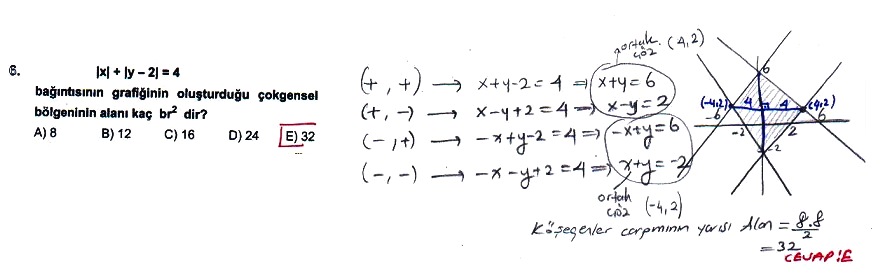 6.
|x| + |y – 2| = 4
bağıntısının grafiğinin oluşturduğu çokgensel
bölgeninin alanı kaç br² dir?
A) 8 B) 12 C) 16 D) 24 E) 32
(+, +) → x+y-2=4 ⇒ x+y=6
(+, -) → x-y+2=4 ⇒ x-y=2
(-, +) → -x+y-2=4 ⇒ -x+y=6
(-, -) → -x-y+2=4 ⇒ x+y=-2
ortak çöz (4,2)
ortak çöz (-4,2)
6
(-4,2) 4 4 (4,2)
-6 -2 2 6
-2
Köşegenler çarpımının yarısı Alan = 8.8/2
=32
CEVAP:E